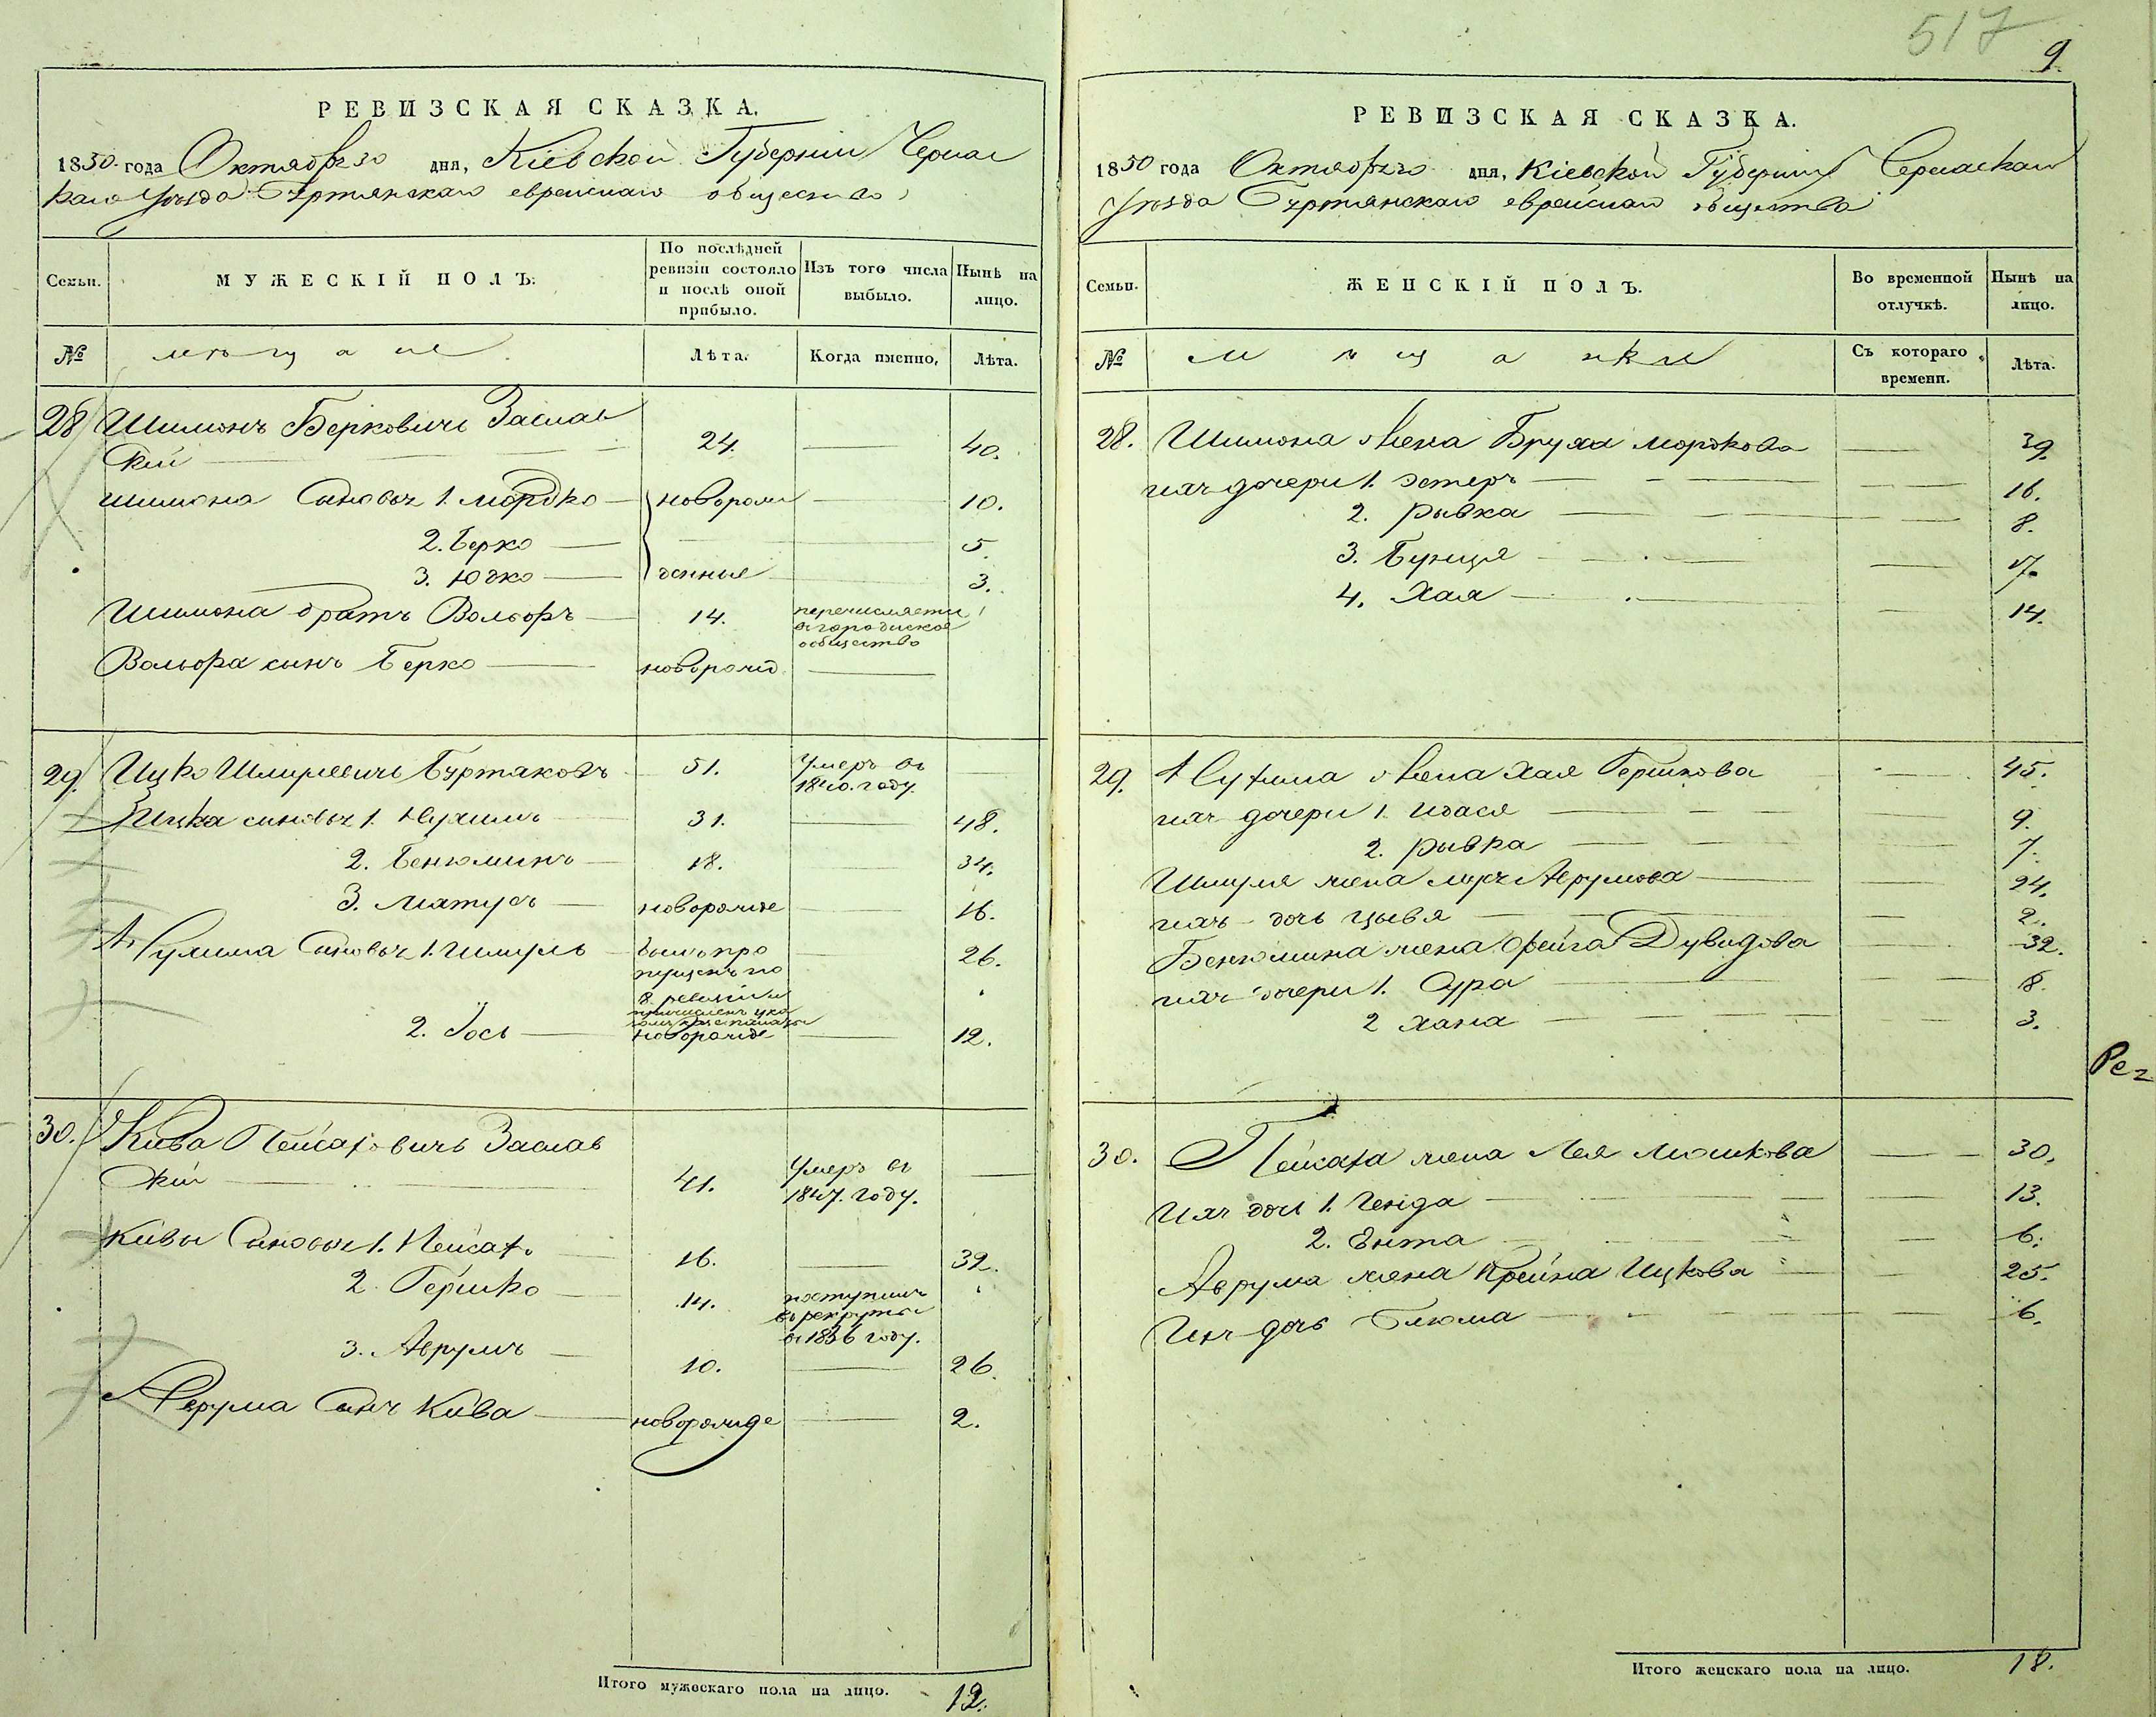 517
9
РЕВИЗСКАЯ СКАЗКА.
1850 года Октября 30 дня, Кіевской Губерніи Черкас
каго Уѣзда Буртянскаго еврейскаго общества
Семьи.
МУЖЕСКІЙ ПОЛЪ.
По послѣдней ревизіи состояло и послѣ оной прибыло.
Изъ того числа выбыло.
Нынѣ на лицо.
№
мѣщане
Лѣта.
Когда именно.
Лѣта.
28 Шимонъ Берковичъ Заслав
скій 24. 40.
Шимона Сыновья 1. Мордко новорож 10.
2. Берко 5.
3. Юдко денные 3.
Шимона братъ Вольфъ 14. перечисляется
въ городиское
общество
Вольфа сынъ Берко новорожд
29. Ицко Шмулевичъ Буртаковъ 51. Умеръ въ
1840. году.
Ицка сыновья 1. Нухимъ 31. 48.
2. Бенюминъ 18. 34.
3. Матусъ новорожде 16.
Нухима Сыновья 1. Шмуль былъ про 26.
пущенъ по
8 ревизіи и
2. Іось новорожде 12.
30. Кива Пейсаховичъ Заслав
скій 41. Умеръ въ
1847. году.
Кивы Сыновья 1. Пейсахъ 16. 32.
2. Гершко 14. поступилъ
въ рекруты
въ 1836 году.
3. Аврумъ 10. 26.
Аврума Сынъ Кива новорожде 2.
Итого мужескаго пола на лицо. 12.
РЕВИЗСКАЯ СКАЗКА.
1850 года Октября 30 дня, Кіевской Губерніи Черкаскаго
Уѣзда Буртянскаго еврейскаго общества
Семьи.
ЖЕНСКІЙ ПОЛЪ.
Во временной отлучкѣ.
Нынѣ на лицо.
№
мѣщанки
Съ котораго времени.
Лѣта.
28. Шимона жена Бруха Мордкова 39.
ихъ дочери 1. Эстеръ 16.
2. Рывка 8.
3. Бунця
4. Хая 14.
29. Нухима жена Хая Гершкова 45.
ихъ дочери 1. Идася 9.
2. Рывка 7.
Шмуля жена Аврумова 24.
ихъ дочь Цывя 2.
Бенюмина жена Фейга Дувидова 32.
ихъ дочери 1. Сура 8.
2 Хана 3.
30. Пейсаха жена Лея Мошкова 30.
Ихъ доч 1. Генда 13.
2. Ента 6.
Аврума жена Крейна Ицкова 25.
Ихъ дочь Блюма 6.
Итого женскаго пола на лицо. 18.